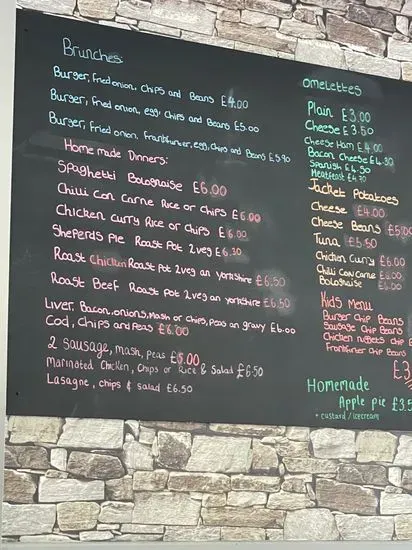 Brunches:
Burger, fried onion, chips and Beans £4.00
Burger, fried onion, egg, chips and Beans £5.00
Burger, Fried onion, frankfurter, egg, chips and Beans £5.90
Home made Dinners:
Spaghetti Bolognaise £6.00
Chilli Con Carne Rice or Chips £6.00
Chicken Curry Rice or Chips £6.00
Sheperds Pie Roast Pot 2 veg £6.30
Roast Chicken Roast Pot 2 veg an Yorkshire £6.50
Roast Beef Roast Pot 2 veg an Yorkshire £6.50
Liver, Bacon, onions, Mash or Chips, peas an gravy £6.00
Cod, Chips and Peas £6.00
2 Sausage, mash, peas £6.00
Marinated Chicken, Chips or Rice & Salad £6.50
Lasagne, chips & salad £6.50
omelettes
Plain £3.00
Cheese £3.50
Cheese Ham £4.00
Bacon Cheese £4.30
Spanish £4.50
Meatfeast £4.70
Jacket Potatoes
Cheese £4.00
Cheese Beans £5.00
Tuna £5.50
Chicken Curry £6.00
Chilli Con Carne £6.00
Bolognaise £6.00
Kids Menu
Burger Chip Beans
Sausage Chip Beans
Chicken nuggets chip
Frankfurter Chip Beans
£3
Homemade
Apple pie £3.5
+ custard / icecream